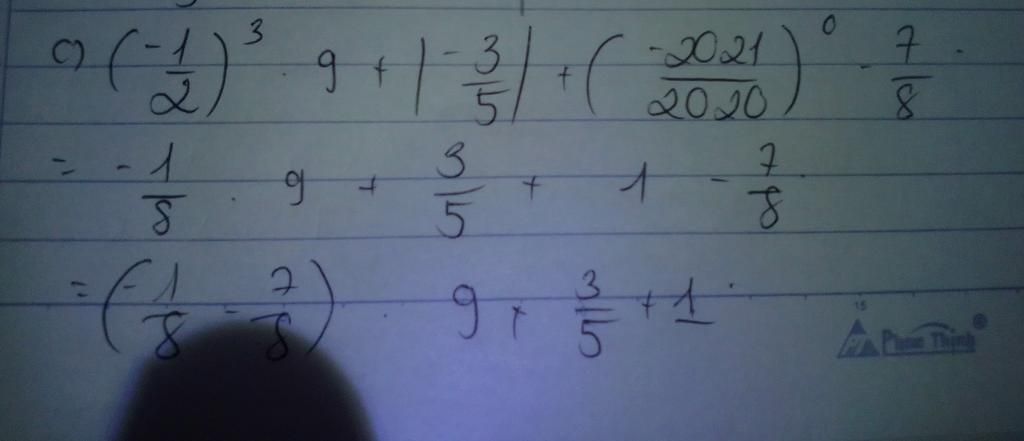 c) (-1/2)^3 . 9 + |-3/5| + (-2021/2020)^0 - 7/8
= -1/8 . 9 + 3/5 + 1 - 7/8
= (-1/8 - 7/8) . 9 + 3/5 + 1
15
Phan Thịnh ®